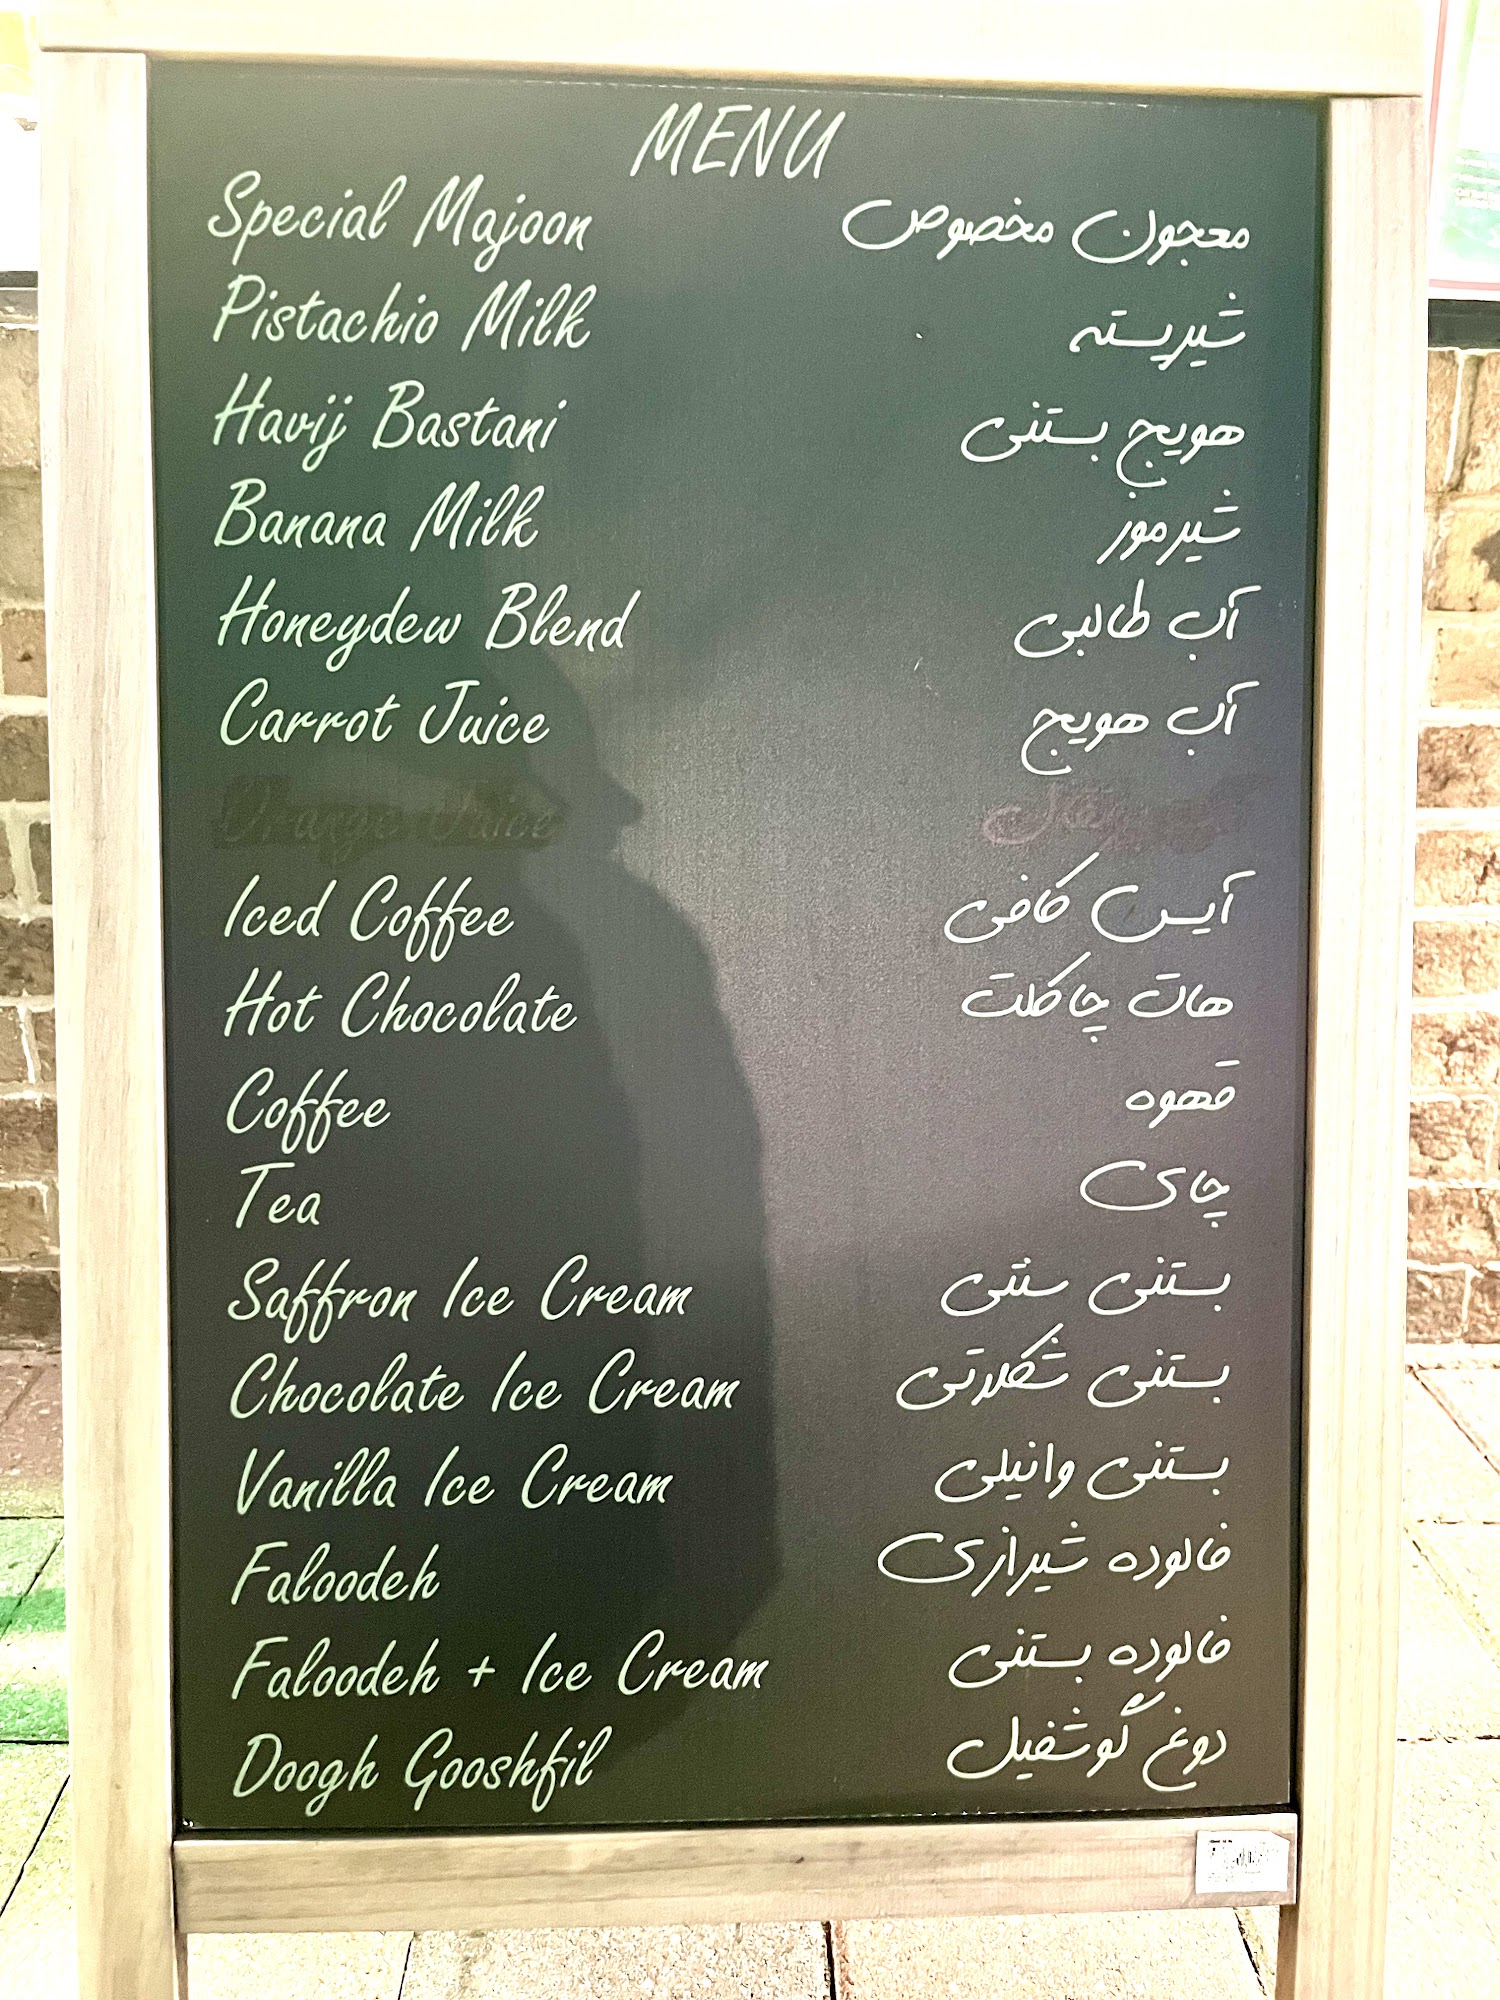 MENU
Special Majoon معجون مخصوص
Pistachio Milk شیرپسته
Havij Bastani هویج بستنی
Banana Milk شیرموز
Honeydew Blend آب طالبی
Carrot Juice آب هویج
Orange Juice
Iced Coffee آیس کافی
Hot Chocolate هات چاکلت
Coffee قهوه
Tea چای
Saffron Ice Cream بستنی سنتی
Chocolate Ice Cream بستنی شکلاتی
Vanilla Ice Cream بستنی وانیلی
Faloodeh فالوده شیرازی
Faloodeh + Ice Cream فالوده بستنی
Doogh Gooshfil دوغ گوشفیل